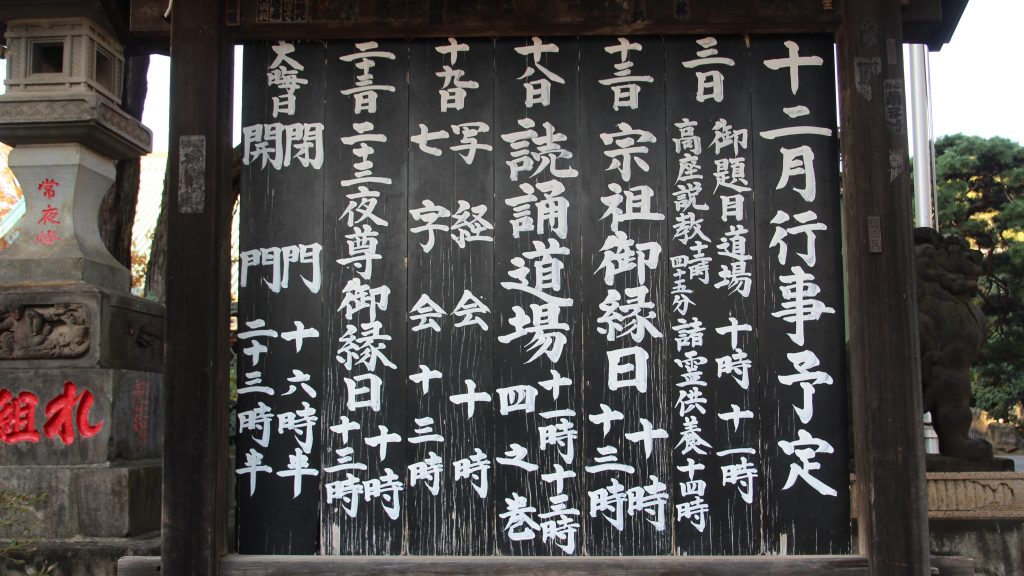 十二月行事予定
三日
御題目道場 十時 十一時
高座説教 十一時四十五分 諸霊供養 十四時
十三日
宗祖御縁日
十時
十三時
十八日
読誦道場
十一時 十三時
四之巻
十九日
写経会 十時
七字会 十三時
二十三日
二十三夜尊御縁日
十時
十三時
大晦日
閉門 十六時半
開門 二十三時半
常夜燈
札
組